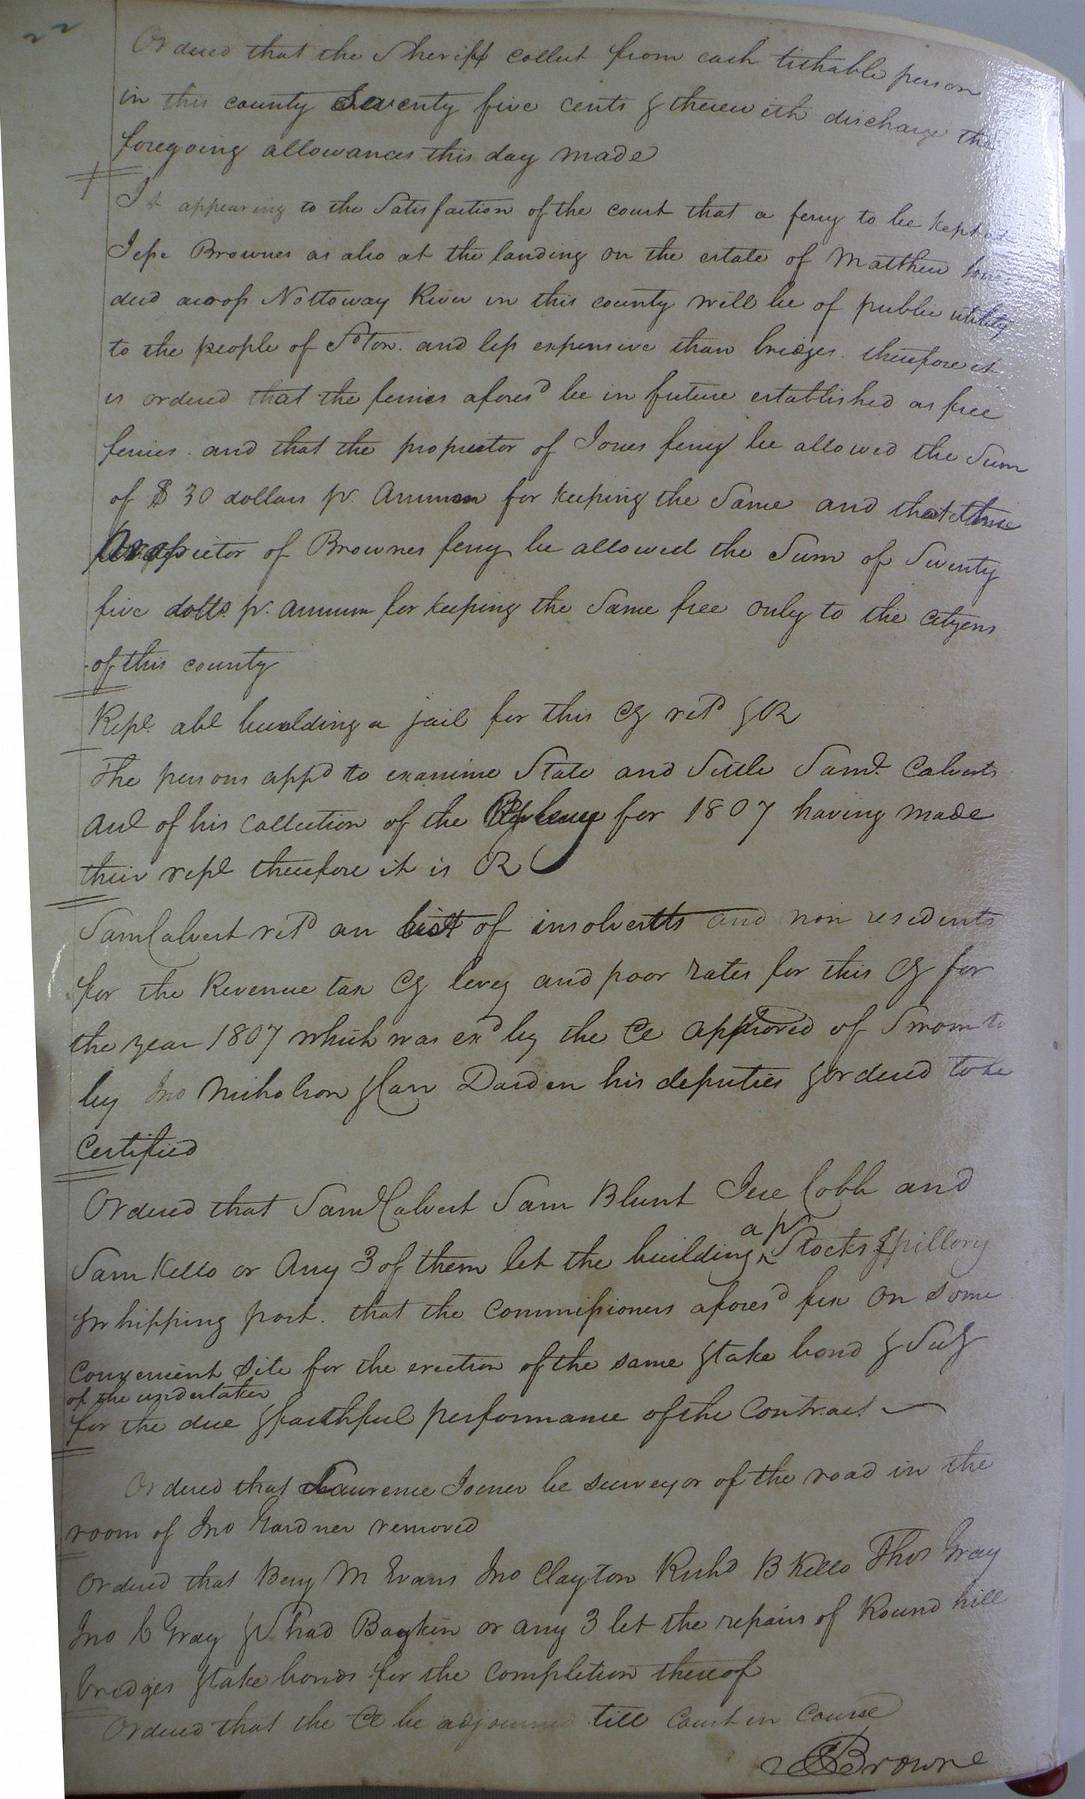 22
Ordered that the Sheriff collect from each tithable person
in this county Seventy five cents & therewith discharge the
foregoing allowances this day made
It appearing to the Satisfaction of the court that a ferry to be kept at
Jesse Brownes as also at the landing on the estate of Matthew
decd across Nottoway River in this county will be of public utility
to the people of Soton. and less expensive than bridges. therefore it
is ordered that the ferries aforesd be in future established as free
ferries. and that the proprietor of Jones ferry be allowed the Sum
of $ 30 dollars pr. Annum for keeping the Same and that the
Proprietor of Brownes ferry be allowed the Sum of Twenty
five dolls pr. annum for keeping the Same free only to the citizens
of this county
Repl. abt building a jail for this Cy retd & R
The persons appd to examine State and Settle Saml. Calverts
Act of his collection of the levy for 1807 having made
their rept therefore it is R
Sam Calvert retd an list of insolvents and non residents
for the Revenue tax Cy levy and poor rates for this Cy for
the year 1807 which was exd by the Ct approved of Sworn to
by Jno Nicholson & Darden his deputies & ordered to be
Certified
Ordered that Saml Calvert Sam Blunt Jere Cobb and
Sam Kello or Any 3 of them let the building a pr Stocks & pillory
& whipping post. that the commissioners aforesd fix on some
Convenient Site for the erection of the same & take bond & Sety
of the undertaker
for the due & faithful performance of the Contract
Ordered that Lawrence Joiner be surveyor of the road in the
room of Jno Gardner removed
Ordered that Benj M Evans Jno Clayton Richd B Kello Thos Gray
Jno C Gray & Boykin or any 3 let the repairs of Round hill
bridges & take bonds for the completion thereof
Ordered that the Ct be adjourned till Court in Course
Browne